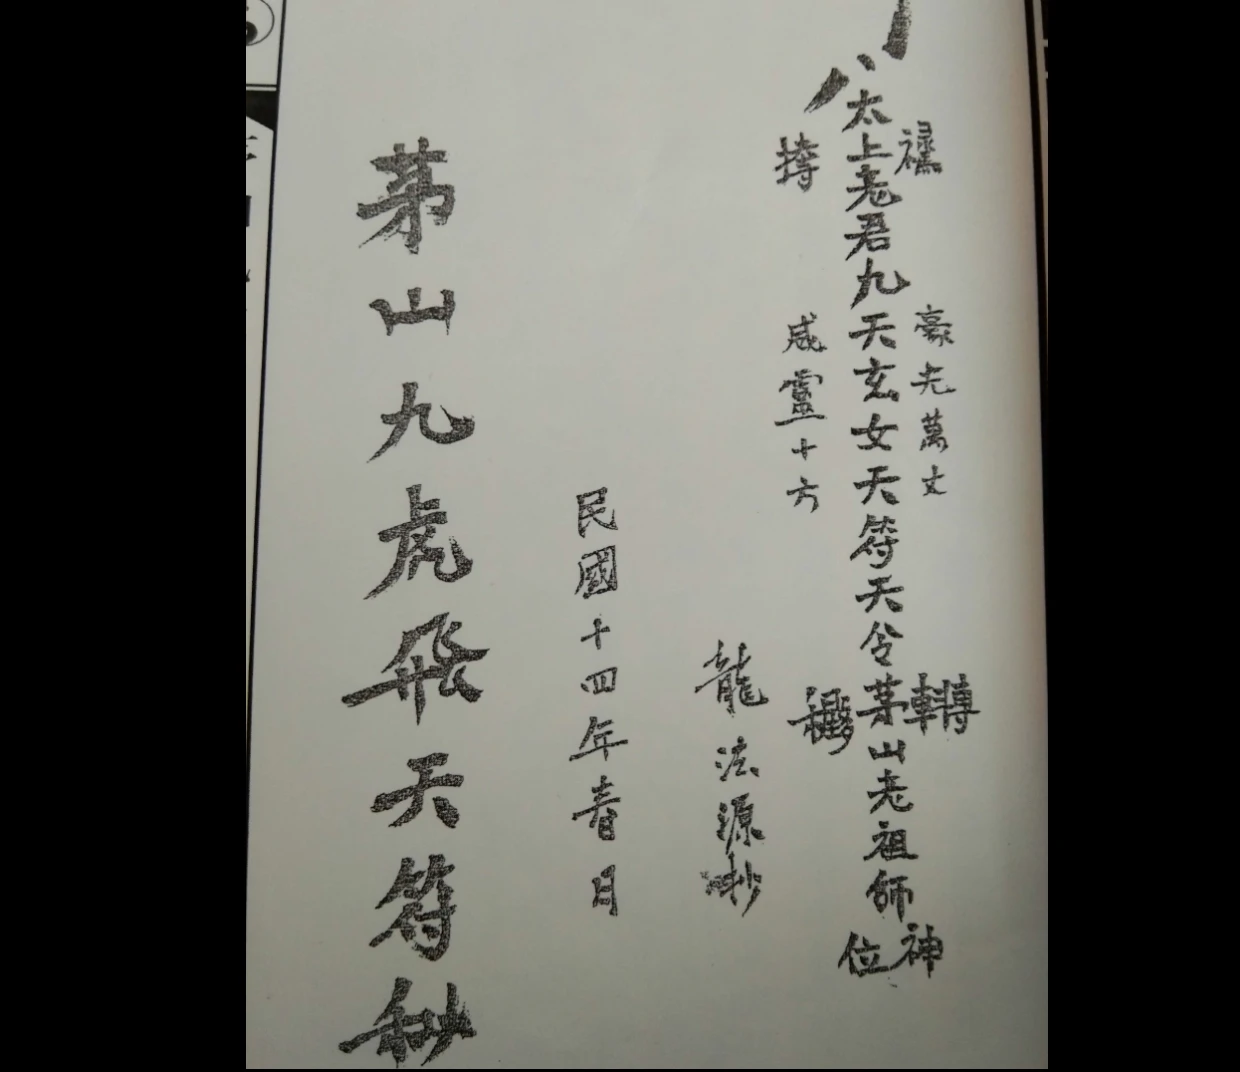 豪光萬丈
太上老君九天玄女天符天令茅山老祖師神位
威靈十方
龍法源抄
民國十四年春月
茅山九虎飛天符秘